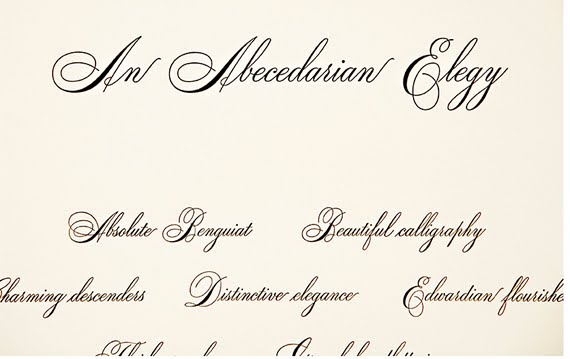 An Abecedarian Elegy
Absolute Benguiat Beautiful calligraphy
harming descenders Distinctive elegance Edwardian flourishe